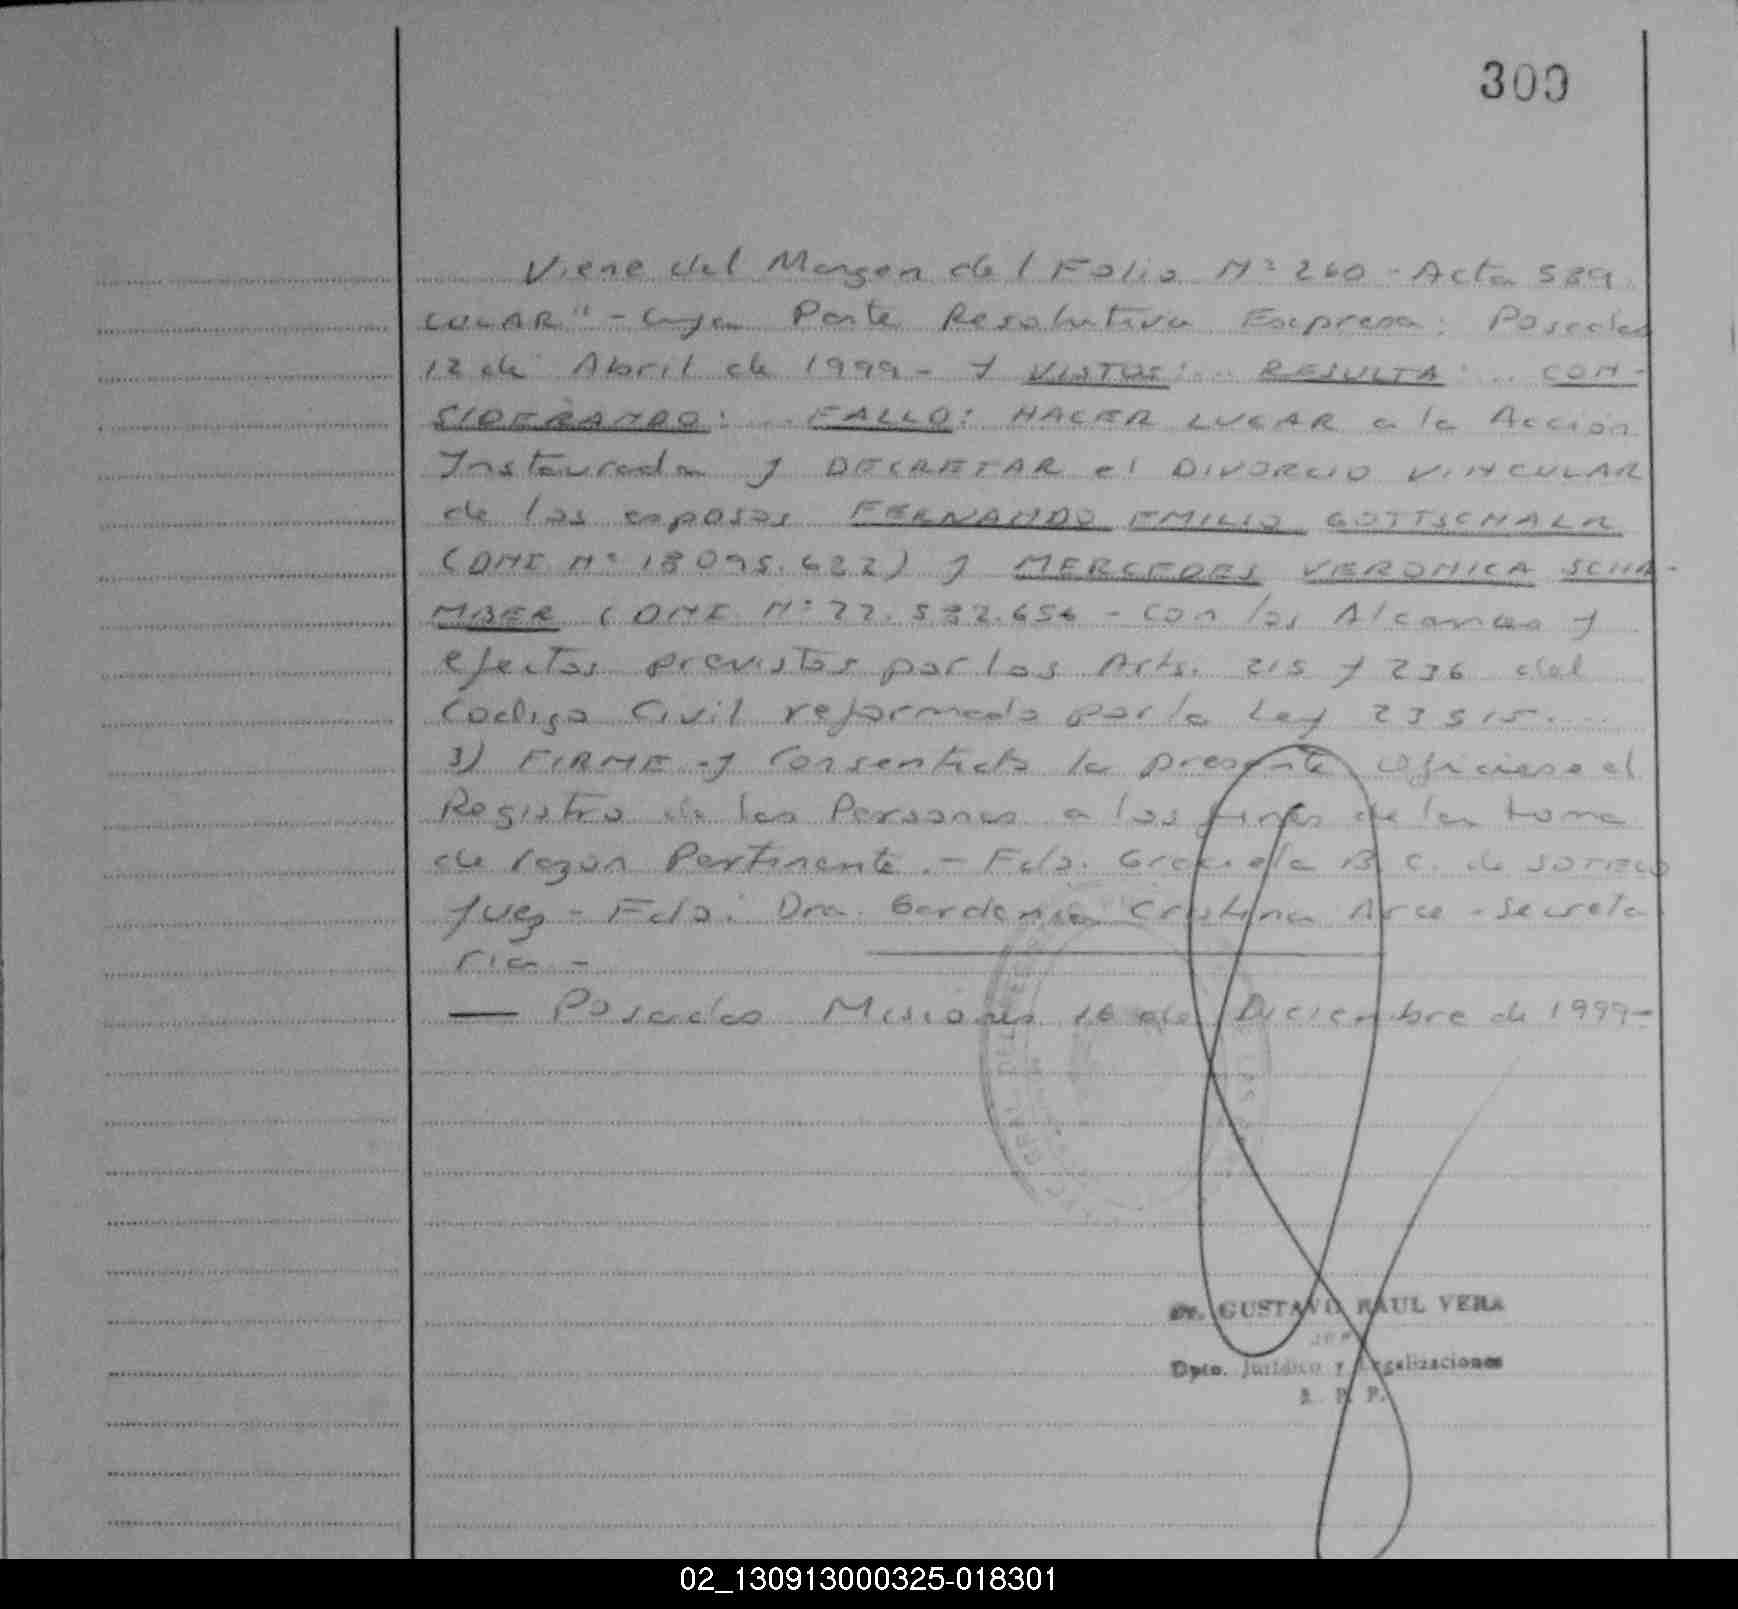 300
Viene del Margen del Folio Nº 260 - Acta 589
CULAR" - Cuya Parte Resolutiva Expresa: Posadas
12 de Abril de 1999 - Y VISTOS: ... RESULTA: ... CON-
SIDERANDO: ... FALLO: HACER LUGAR a la Acción
Instaurada y DECRETAR el DIVORCIO VINCULAR
de los esposos FERNANDO EMILIO GOTTSCHALK
(DNI Nº 18.095.622) y MERCEDES VERONICA SCHA-
MBER (DNI Nº 22.532.656 - con los Alcances y
efectos previstos por los Arts. 215 y 236 del
Codigo Civil reformado por la Ley 23515. ...
3) FIRME y Consentida la presente ofíciese al
Registro de las Personas a los fines de la toma
de razon Pertinente. - Fdo. Graciela B. C. de SOTELO
Juez - Fdo: Dra. Gardenia Cristina Arce - Secreta
ria -
— Posadas Misiones 16 de Diciembre de 1999 -
Dr. GUSTAVO RAUL VERA
Dpto. Jurídico y Legalizaciones
R. P. P.
02_130913000325-018301